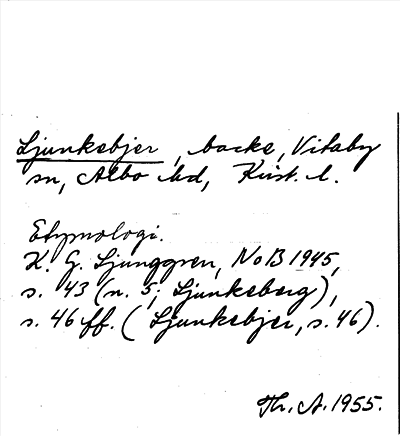 Ljunkebjer, backe, Vitaby
sn, Albo hd, Krist. l.
Etymologi.
K. G. Ljunggren, NoB 1945,
s. 43 (n. 5; Ljunkeberg),
s. 46 ff. (Ljunkebjer, s. 46).
Th. A. 1955.